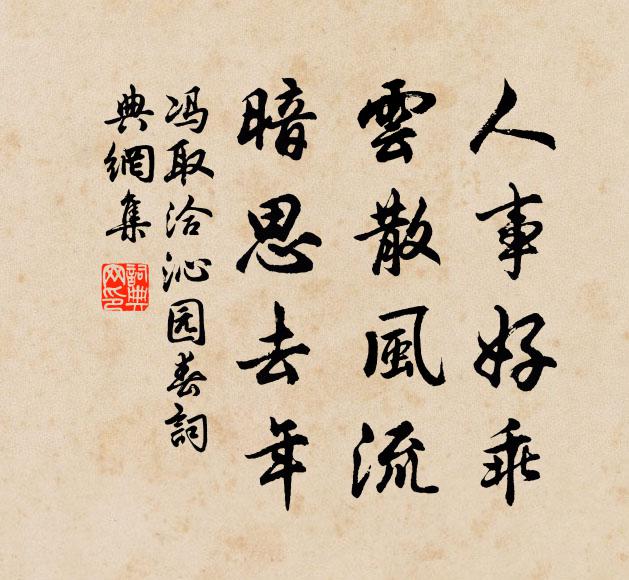 人事好乖
雲散風流
暗思去年
冯取洽沁园春詞
典網集
詞典网印